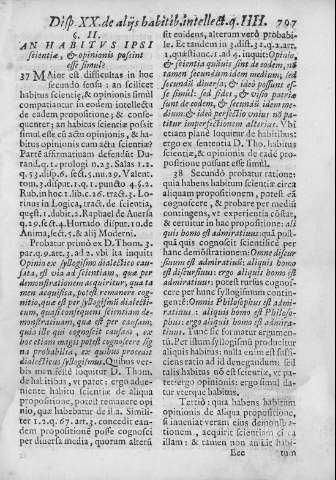 Disp. XX. de alijs habitib. intellect. q. IIII. 797
§. II.
AN HABITVS IPSI
scientiæ, & opinionis possint
esse simul?
37 MAior est difficultas in hoc
secundo sensu: an scilicet
habitus scientiæ, & opinionis simul
compatiantur in eodem intellectu
de eadem propositione; & conse-
quenter; an habitus scientiæ possit
simul esse cū actu opinionis, & ha-
bitus opinionis cum actu scientiæ?
Partē affirmatiuam defendūt Du-
rand. q. 1. prologi n. 23. Salas 1. 2.
q. 53. disp. 6. sect. 5. nu. 29. Valent.
tom. 3. disput. 1. q. 1. puncto 4. §. 2.
Rub. in hoc 1. lib. c. 26. tract. 3. Lo-
rinus in Logica, tract. de scientia,
quæst. 1. dubit. 2. Raphael de Auersa
q. 29. sect. 4. Hurtado disput. 10. de
Anima, sect. 5. & alij Moderni.
Probatur primò ex D. Thom. 3.
par. q. 9. art. 3. ad 2. vbi ita inquit:
Opinio ex syllogismo dialectico cau-
sata, est via ad scientiam, quæ per
demonstrationem acquiritur, qua ta
men acquisita, potest remanere cog-
nitio, quæ est per syllogismū dialecti-
cum, quasi consequens scientiam de-
monstratiuam, quæ est per causam,
quia ille qui cognoscit causam, ex
hoc etiam magis potest cognoscere sig
na probabilia, ex quibus procedit
dialecticus syllogismus. Quibus ver-
bis men loquitur D. Thom.
de habitibus, vt patet: ergo adue-
niente habitu scientiæ de aliqua
propositione, potest remanere opi
nio, quæ habebatur de illa. Simili-
ter 1. 2. q. 67. art. 3. concedit ean-
dem propositionē posse cognosci
per diuersa media, quorum alterū
sit euidens, alterum verò probabi-
le. Et tandem in 3. dist. 31. q. 2. art.
1. quæstiunc. 1. ad 4. inquit: Opinio,
& scientia quāuis sint de eodem, nō
tamen secundum idem medium, sed
secundū diuersa, & ideò possunt es-
se simul: sed fides, & visio patriæ
sunt de eodem, & secundū idem me-
dium. & ideò perfectio vnius nō pa-
titur imperfectionem alterius. Vbi
etiam planè loquitur de habitibus:
ergo ex sententia D. Tho. habitus
scientiæ, & opinionis de eadē pro-
positione possunt esse simul.
38 Secundò probatur ratione:
quia habens habitum scientiæ circa
aliquam propositionem, potest eā
cognoscere, & probare per mediū
contingens, vt experientia cōstat,
& cernitur in hac propositione: ali
quis homo est admiratiuus; quā post-
quā quis cognoscit scientificè per
hanc demonstrationem: Omne discur
siuum est admiratiuū: aliquis homo
est discursiuus: ergo aliquis homo est
admiratiuus: potest rursus cognos-
cere per hunc syllogismum contin-
gentē: Omnis Philosophus est admi-
ratiuus: aliquis homo est Philoso-
phus: ergo aliquis homo est admi-
ratiuus. Tunc sic formatur argumen-
tū. Per istum syllogismū producitur
aliquis habitus: nulla enim est suffi-
ciens ratio ad id denegandum: sed
talis habitus nō est scientiæ, vt pa-
tet: ergo opinionis: ergo simul da-
tur vterque habitus.
Tertiò: quia habens habitum
opinionis de aliqua propositione,
si inueniat veram eius demonstra-
tionem, acquirit scientiam circa
illam: & tamen non amittit habi-
Eee tum